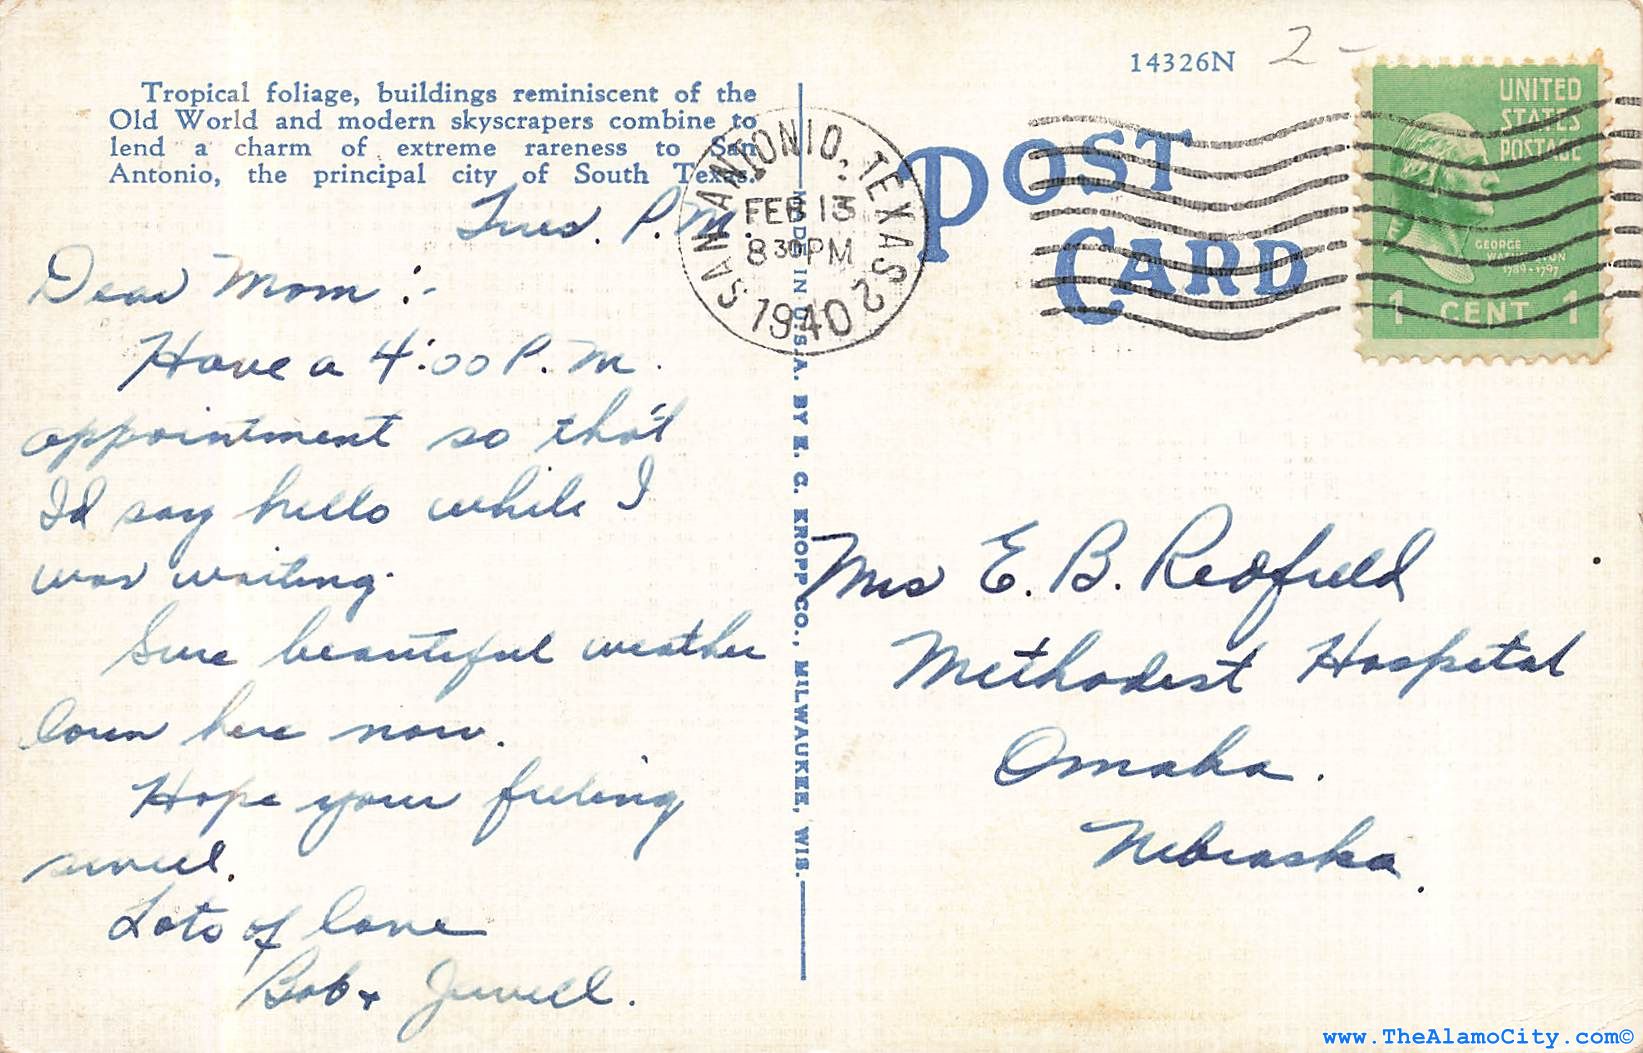 14326N 2-
Tropical foliage, buildings reminiscent of the
Old World and modern skyscrapers combine to
lend a charm of extreme rareness to San
Antonio, the principal city of South Texas.
SAN ANTONIO, TEXAS 2
FEB 13
8 30 PM
1940
POST
CARD
UNITED
STATES
POSTAGE
GEORGE
WASHINGTON
1789-1797
1 CENT 1
Tues. P.M.
Dear Mom:-
Have a 4:00 P.M.
appointment so that
I'd say hello while I
was waiting.
Sure beautiful weather
down here now.
Hope your feeling
swell.
Lots of love
Bob + Jewell.
MADE IN U.S.A. BY E. C. KROPP CO., MILWAUKEE, WIS.
Mrs E. B. Redfield
Methodist Hospital
Omaha.
Nebraska.
www.TheAlamoCity.com©